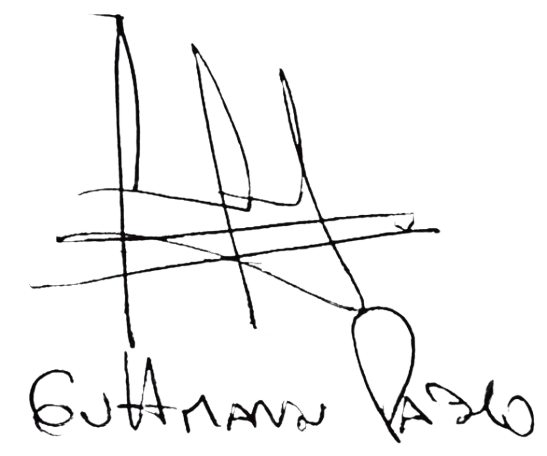 GUttMANN PABLO